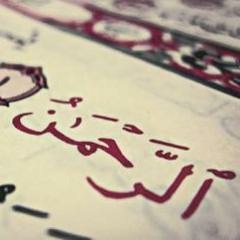 الرَّحْمَٰنُ